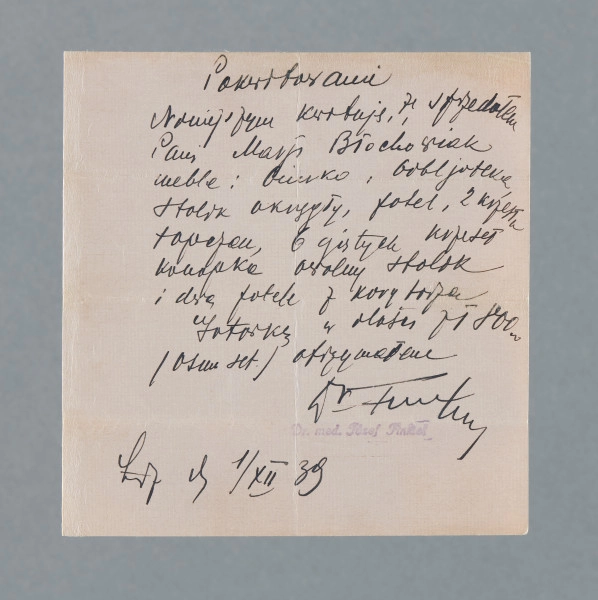 Pokwitowanie
Niniejszym kwituję, że sprzedałem
Pani Marji Błochowiak
meble: biurko, bibljotekę,
stolik okrągły, fotel, 2 krzesła
tapczan, 6 giętych krzeseł
kanapka owalny stolik
i dwa fotele z korytarza
Gotówkę w ilości zł 800
(osiemset) otrzymałem
Dr
Dr. med. Józef
Łódź d 1/XII 39